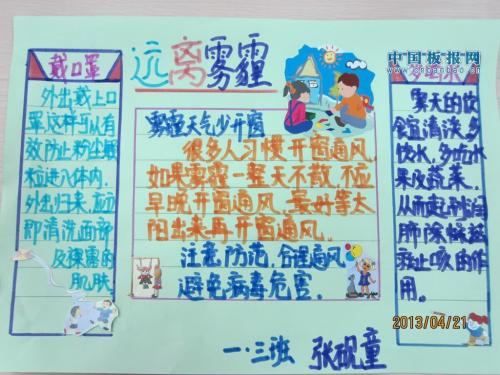 远离雾霾
中国板报网
戴口罩
外出戴上口
罩这样可以有
效防止粉尘颗
粒进入体内.
外出归来,应立
即清洗面部
及裸露的
肌肤.
雾霾天气少开窗
很多人习惯开窗通风,
如果雾霾一整天不散,不应
早晚开窗通风,最好等太
阳出来再开窗通风.
注意防范,合理通风
避免病毒危害.
雾天的饮
食宜清淡,多
饮水,多吃水
果及蔬菜,
从而起到润
肺除燥
止咳的作
用.
2013/04/21
一·三班 张砚童